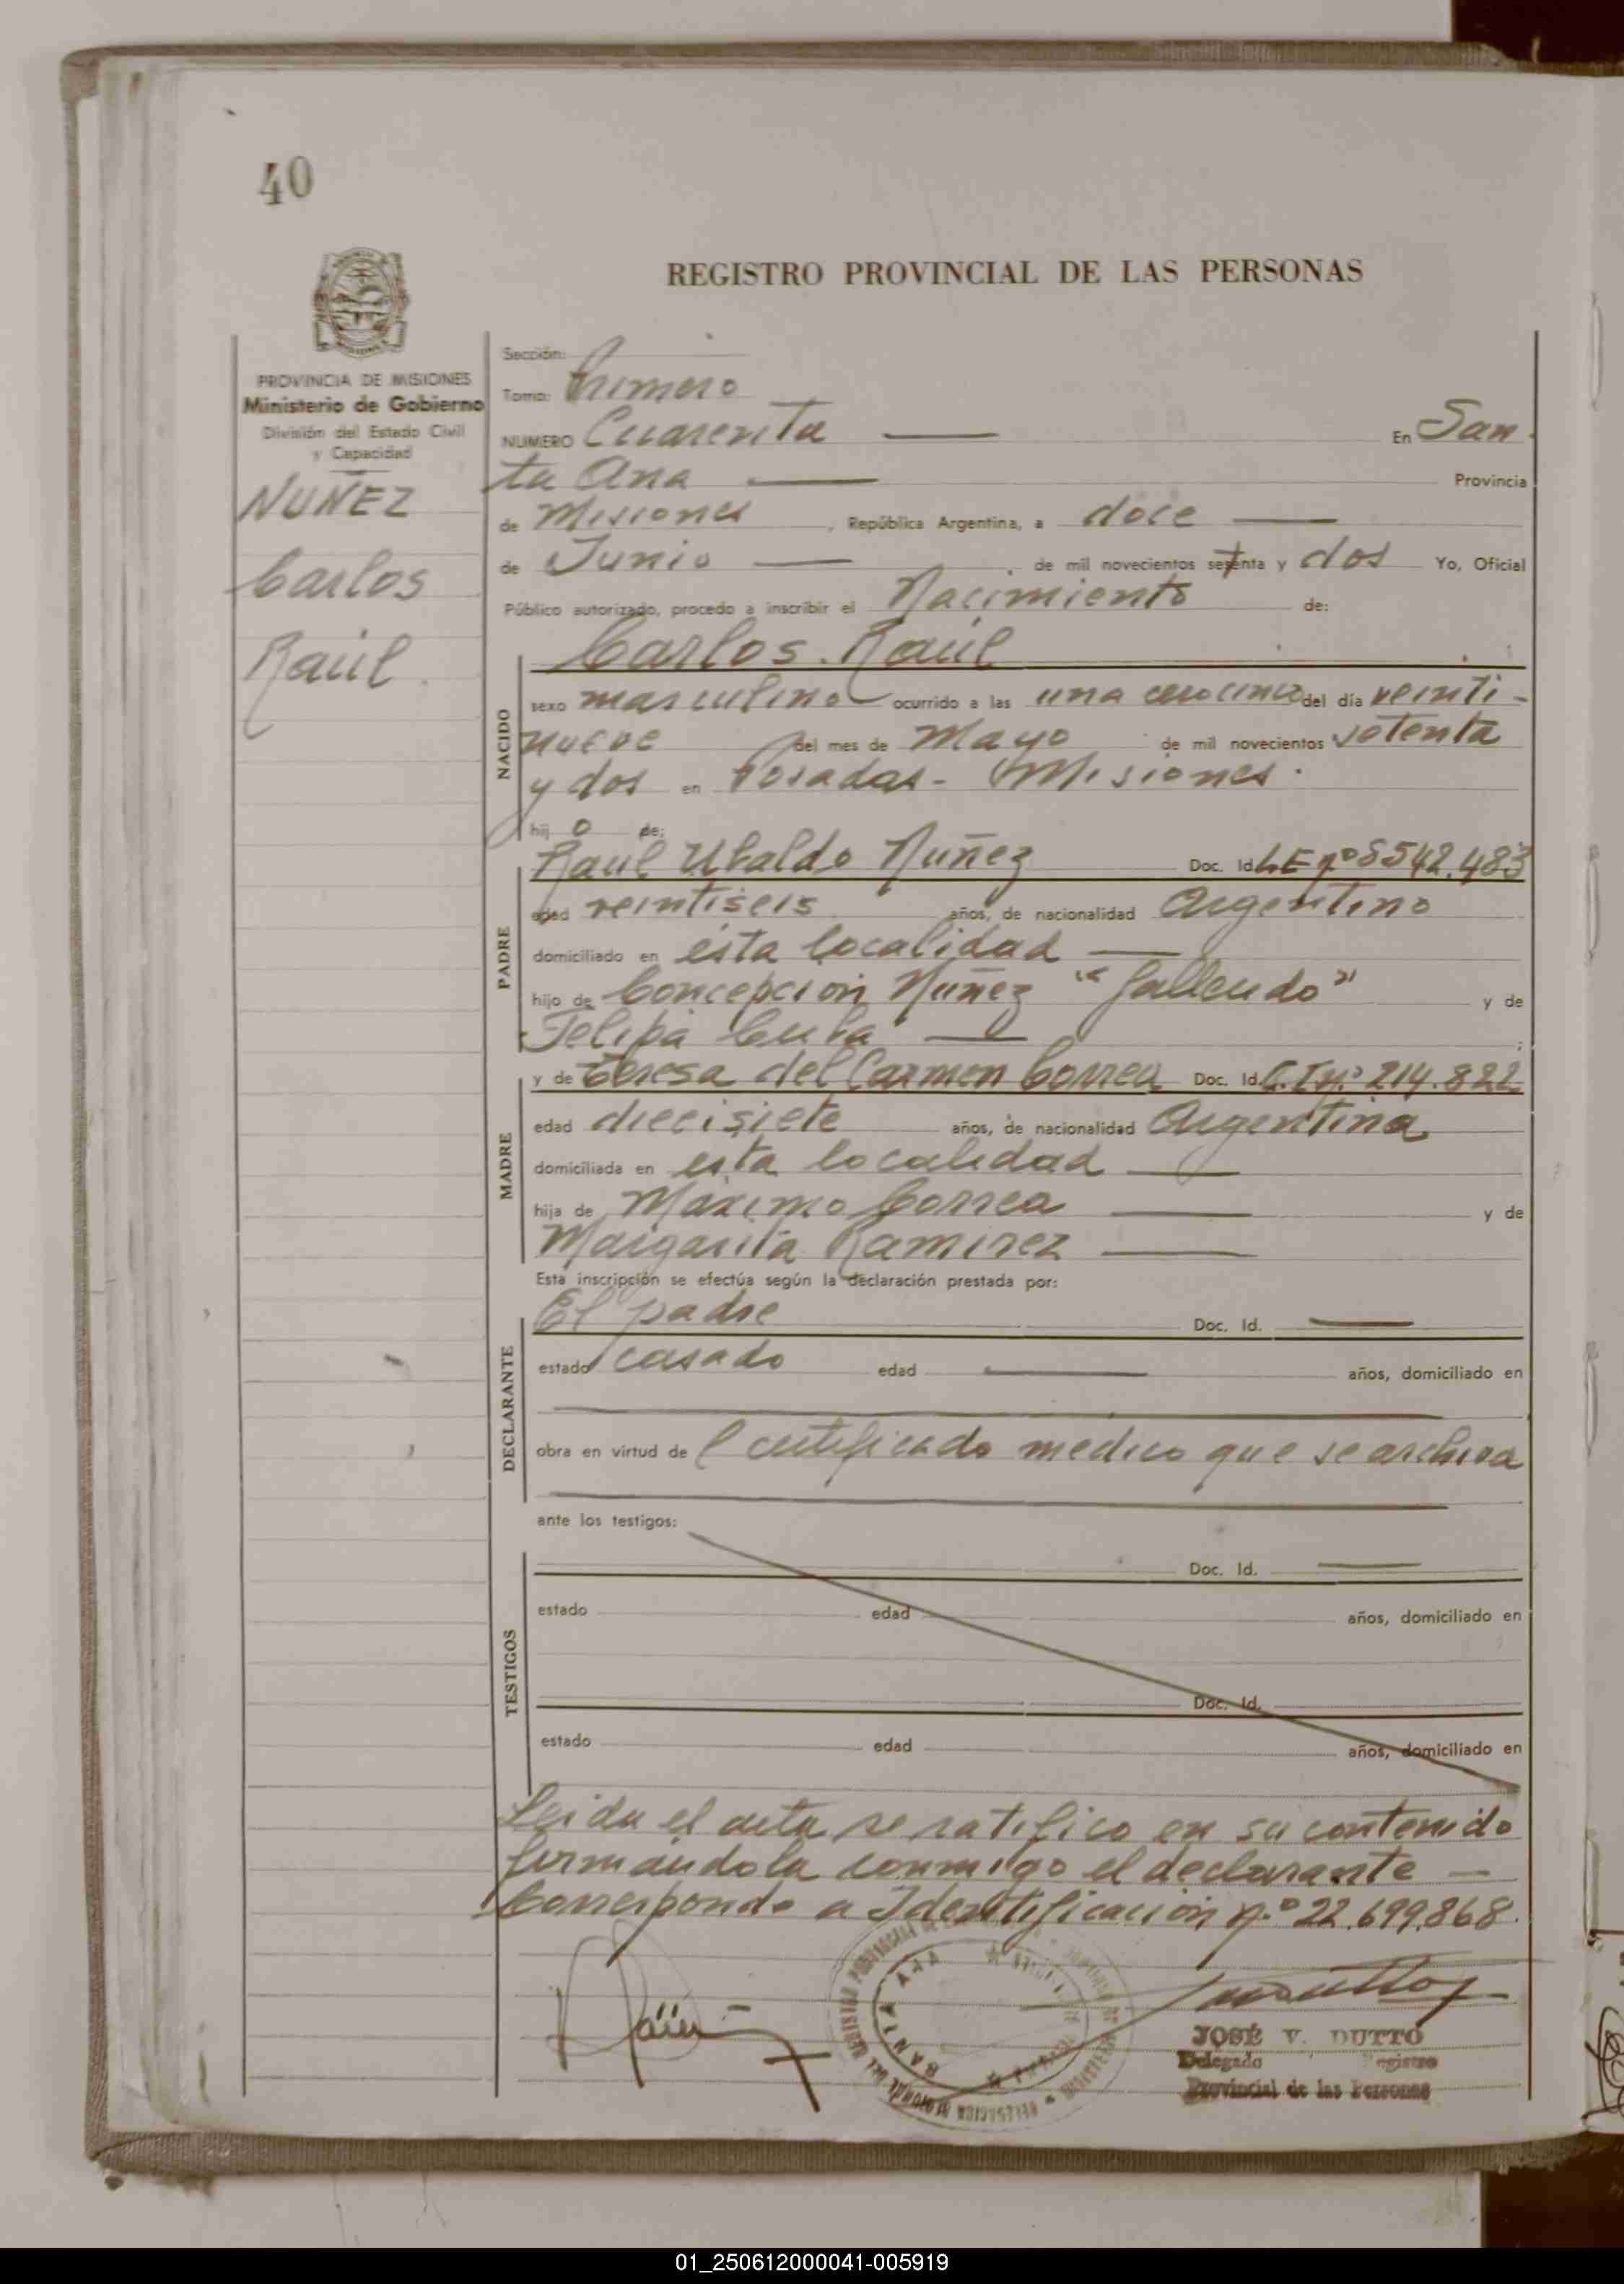 40
REGISTRO PROVINCIAL DE LAS PERSONAS
PROVINCIA DE MISIONES
Ministerio de Gobierno
División del Estado Civil
y Capacidad
NUÑEZ
Carlos
Raúl
Sección:
Tomo: Primero
NUMERO Cuarenta En San
ta Ana Provincia
de Misiones, República Argentina, a doce
de Junio, de mil novecientos setenta y dos Yo, Oficial
Público autorizado, procedo a inscribir el Nacimiento de:
Carlos Raúl
NACIDO
sexo masculino ocurrido a las una cero cinco del día veinti-
nueve del mes de Mayo de mil novecientos setenta
y dos en Posadas - Misiones.
hijo de:
PADRE
Raul Ubaldo Nuñez Doc. Id. LE nº 8542.483
edad veintiseis años, de nacionalidad Argentino
domiciliado en esta localidad
hijo de Concepcion Nuñez "fallecido" y de
Felipa Cuba ;
MADRE
y de Teresa del Carmen Correa Doc. Id. C.I nº 214.822
edad diecisiete años, de nacionalidad Argentina
domiciliada en esta localidad
hija de Máximo Correa y de
Margarita Ramirez
Esta inscripción se efectúa según la declaración prestada por:
DECLARANTE
El padre Doc. Id.
estado casado edad años, domiciliado en
obra en virtud de l certificado medico que se archiva
ante los testigos:
TESTIGOS
Doc. Id.
estado edad años, domiciliado en
Doc. Id.
estado edad años, domiciliado en
Leida el acta se ratifico en su contenido
firmandola conmigo el declarante —
Corresponde a Identificacion nº 22.699.868.
JOSÉ V. DUTTO
Delegado Registro
Provincial de las Personas
01_250612000041-005919